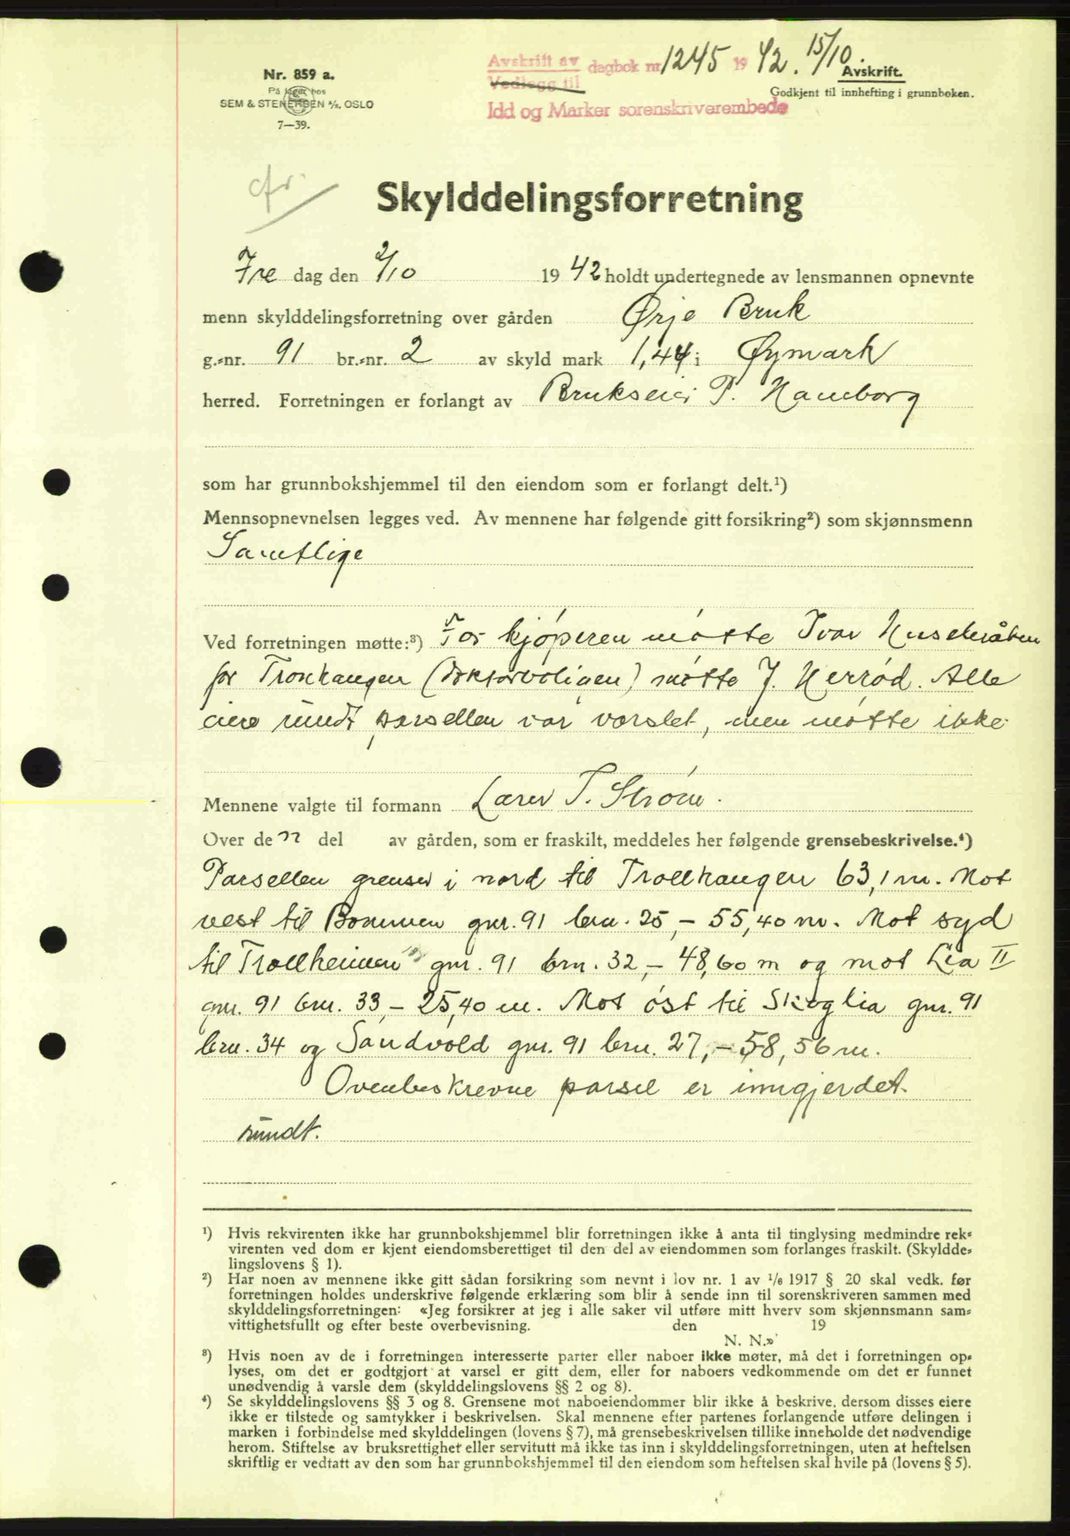 Nr. 859 a.
På lager hos
SEM & STENERSEN A/S, OSLO
7—39.
Avskrift av
Vedlegg til
dagbok nr. 1245 1942. 15/10.
Idd og Marker sorenskriverembede
Avskrift.
Godkjent til innhefting i grunnboken.
cfr.
Skylddelingsforretning
Fre dag den 2/10 1942 holdt undertegnede av lensmannen opnevnte
menn skylddelingsforretning over gården Ørje Bruk
g.-nr. 91 br.-nr. 2 av skyld mark 1,44 i Øymark
herred. Forretningen er forlangt av Brukseier P. Hamborg
som har grunnbokshjemmel til den eiendom som er forlangt delt.¹)
Mennsopnevnelsen legges ved. Av mennene har følgende gitt forsikring²) som skjønnsmenn
Samtlige
Ved forretningen møtte:³) For kjøperen møtte Ivar
for (doktorboligen) møtte J. Herrød. Alle
eiere rundt parsellen var varslet, men møtte ikke.
Mennene valgte til formann Lærer T. Strøm.
Over de n del av gården, som er fraskilt, meddeles her følgende grensebeskrivelse.⁴)
Parsellen grenser i nord til Trollhaugen 63,1 m. Mot
vest til Bommen gnr. 91 brn. 25, – 55,40 m. Mot syd
til Trollheimen gnr. 91 brn. 32, – 48,60 m og mot Lia II
gnr. 91 brn. 33, – 25,40 m. Mot øst til Skoglia gnr. 91
brn. 34 og Sandvold gnr. 91 brn. 27, – 58,56 m.
Ovenbeskrevne parsel er inngjerdet
rundt.
¹) Hvis rekvirenten ikke har grunnbokshjemmel blir forretningen ikke å anta til tinglysing medmindre rek-
virenten ved dom er kjent eiendomsberettiget til den del av eiendommen som forlanges fraskilt. (Skyldde-
lingslovens § 1).
²) Har noen av mennene ikke gitt sådan forsikring som nevnt i lov nr. 1 av 1/6 1917 § 20 skal vedk. før
forretningen holdes underskrive følgende erklæring som blir å sende inn til sorenskriveren sammen med
skylddelingsforretningen: «Jeg forsikrer at jeg i alle saker vil utføre mitt hverv som skjønnsmann sam-
vittighetsfullt og efter beste overbevisning. den 19
N. N.»
³) Hvis noen av de i forretningen interesserte parter eller naboer ikke møter, må det i forretningen op-
lyses, om det er godtgjort at varsel er gitt dem, eller for naboers vedkommende om det er funnet
unødvendig å varsle dem (skylddelingslovens §§ 2 og 8).
⁴) Se skylddelingslovens §§ 3 og 8. Grensene mot naboeiendommer blir ikke å beskrive, dersom disses eiere
ikke er tilstede og samtykker i beskrivelsen. Skal mennene efter partenes forlangende utføre delingen i
marken i forbindelse med skylddelingen (lovens § 7), må grensebeskrivelsen tillike inneholde det nødvendige
herom. Stiftelse av bruksrettighet eller servitutt må ikke tas inn i skylddelingsforretningen, uten at heftelsen
skriftlig er vedtatt av den som har grunnbokshjemmel til den eiendom som heftelsen skal hvile på (lovens § 5).